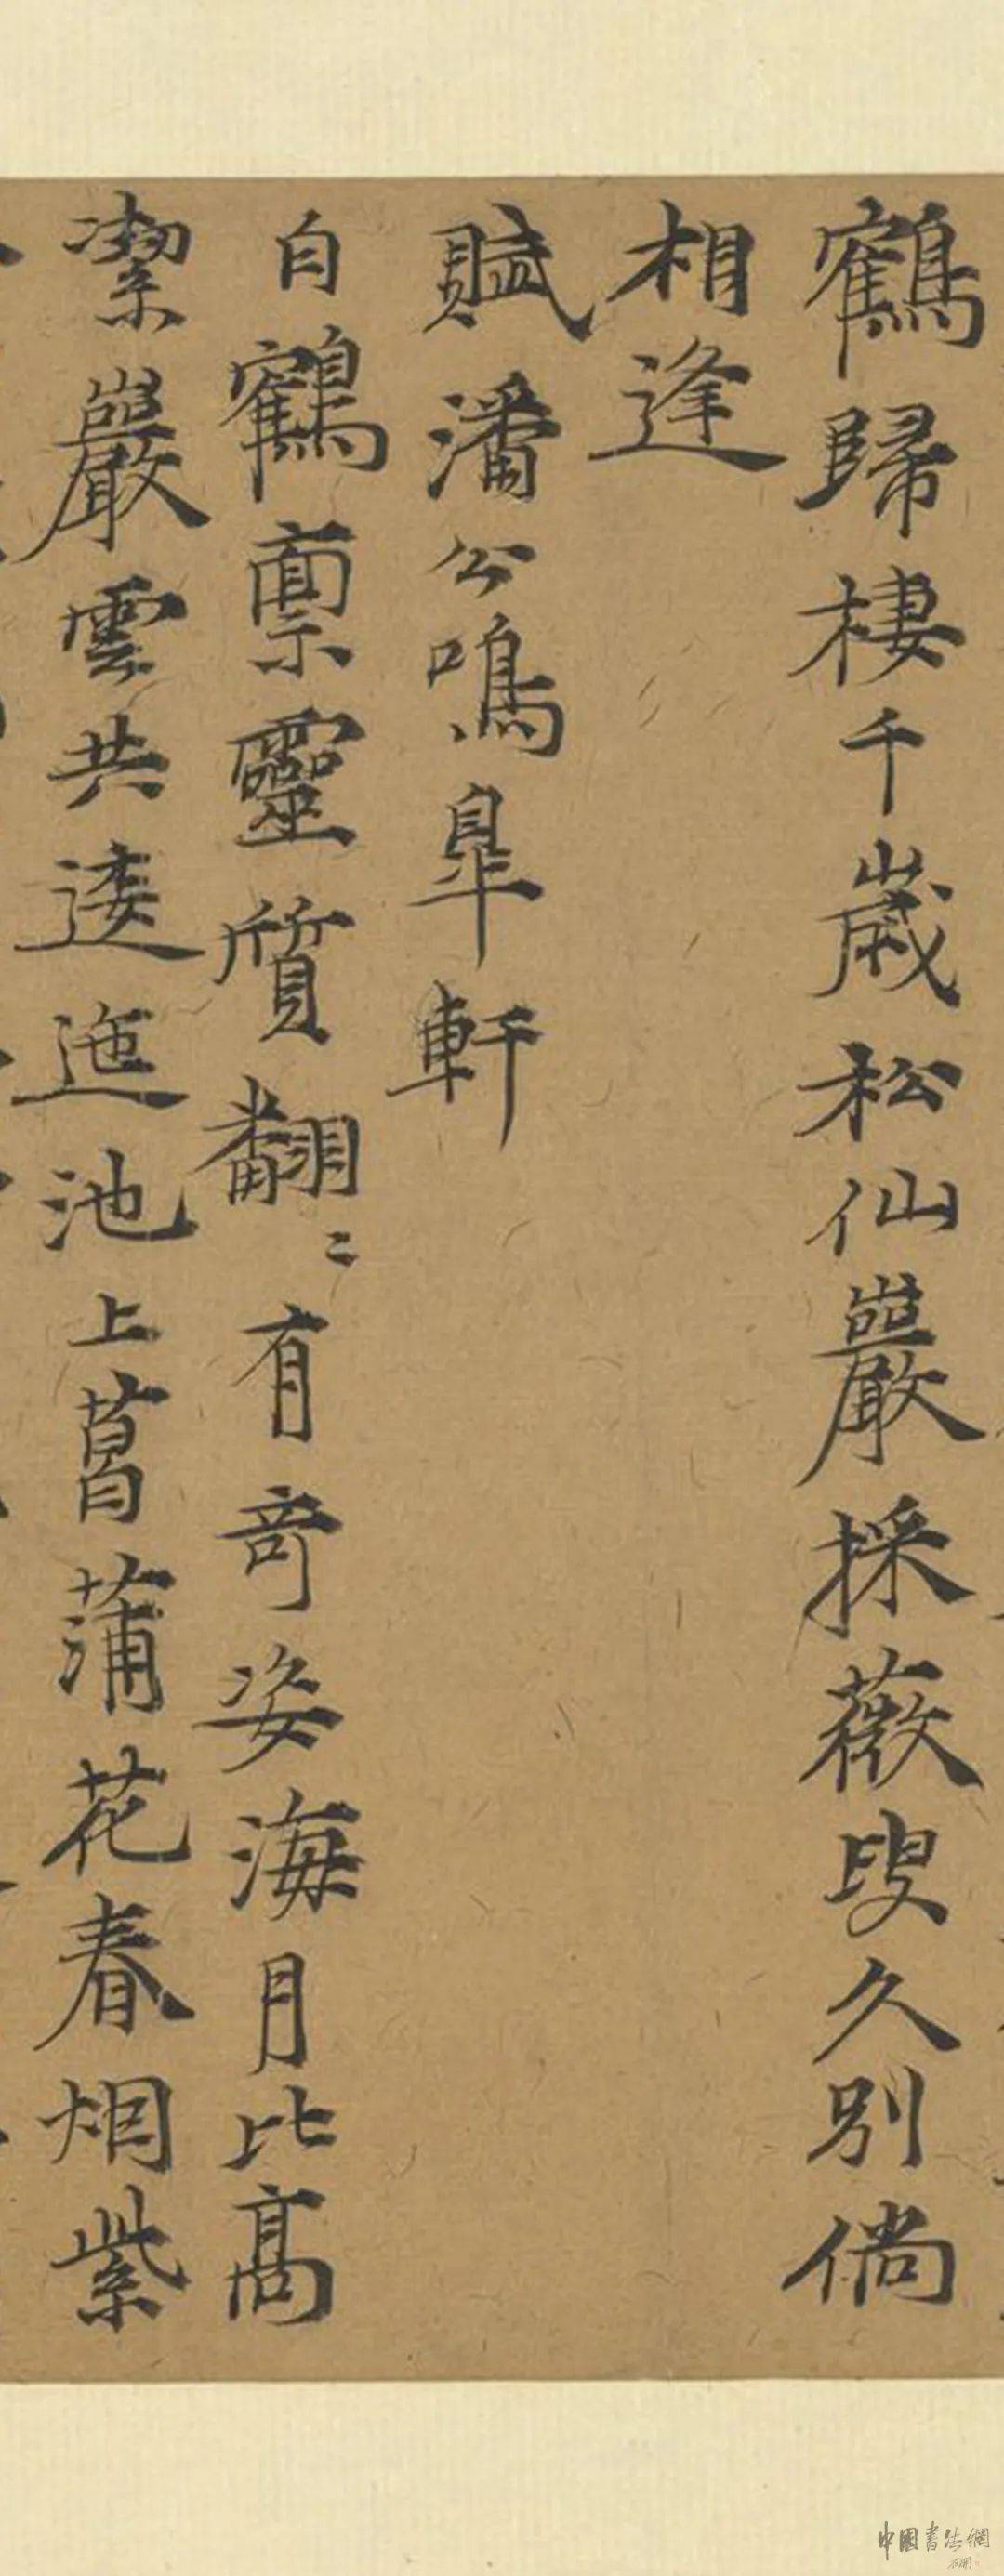 鶴歸棲千歲松仙巖採薇叟久別倘
相逢
賦潘公鳴皐軒
白鶴禀靈質翻〻有奇姿海月比高
潔巖雲共逶迤池上菖蒲花春烟紫
中國書法網